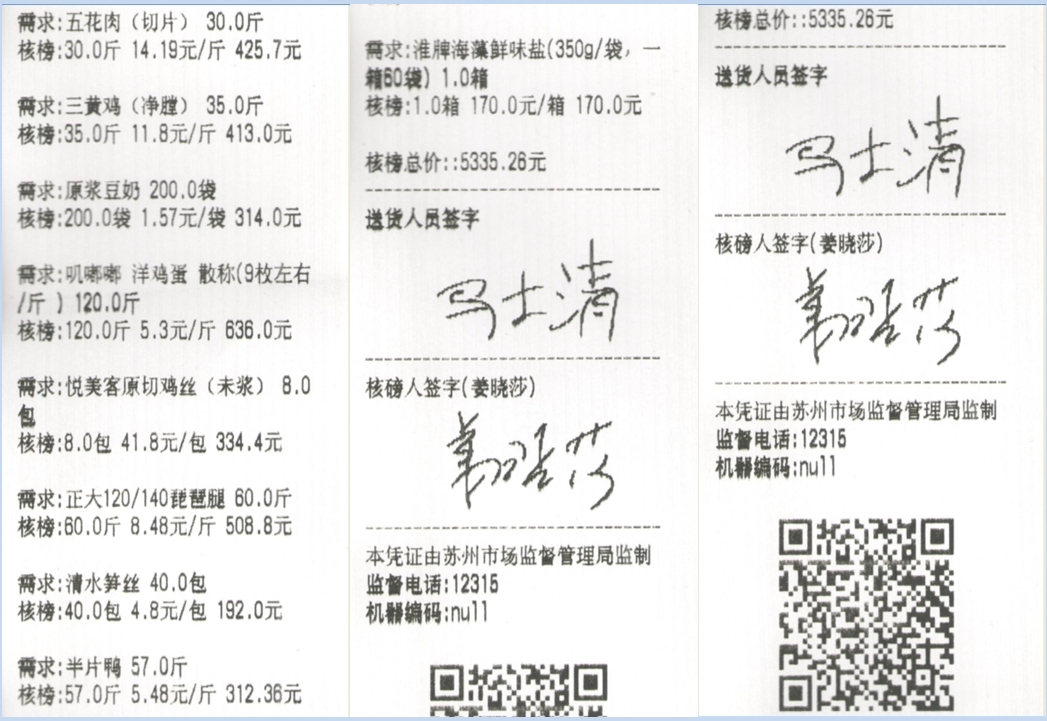 需求:五花肉（切片） 30.0斤
核榜:30.0斤 14.19元/斤 425.7元
需求:三黄鸡（净膛） 35.0斤
核榜:35.0斤 11.8元/斤 413.0元
需求:原浆豆奶 200.0袋
核榜:200.0袋 1.57元/袋 314.0元
需求:叽嘟嘟 洋鸡蛋 散称(9枚左右
/斤 ) 120.0斤
核榜:120.0斤 5.3元/斤 636.0元
需求:悦美客原切鸡丝（未浆） 8.0
包
核榜:8.0包 41.8元/包 334.4元
需求:正大120/140琵琶腿 60.0斤
核榜:60.0斤 8.48元/斤 508.8元
需求:清水笋丝 40.0包
核榜:40.0包 4.8元/包 192.0元
需求:半片鸭 57.0斤
核榜:57.0斤 5.48元/斤 312.36元
需求:淮牌海藻鲜味盐(350g/袋，一
箱60袋) 1.0箱
核榜:1.0箱 170.0元/箱 170.0元
核榜总价::5335.26元
送货人员签字
马士清
核磅人签字(姜晓莎)
姜晓莎
本凭证由苏州市场监督管理局监制
监督电话:12315
机器编码:null
核榜总价::5335.26元
送货人员签字
马士清
核磅人签字(姜晓莎)
姜晓莎
本凭证由苏州市场监督管理局监制
监督电话:12315
机器编码:null